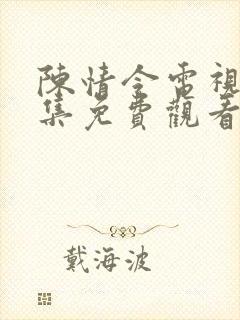 陳情令電視
集免費觀看
戴海波